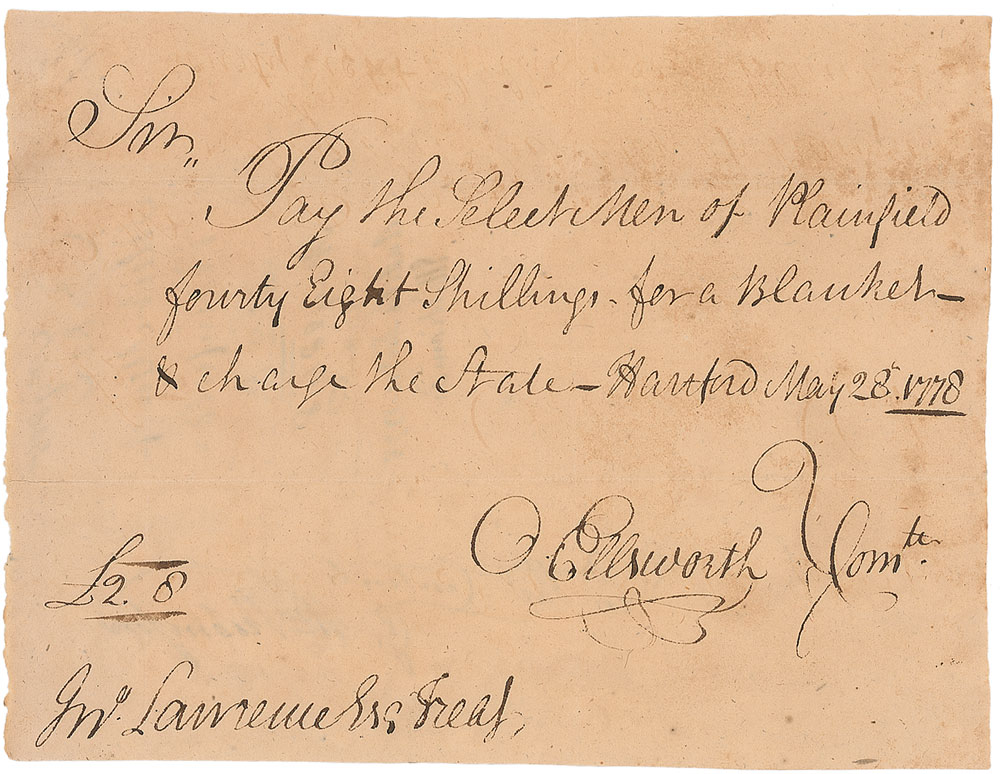 Sir,,
Pay the Select Men of Plainfield
fourty Eight Shillings - for a Blanket -
& charge the State - Hartford May 28th. 1778
O Ellsworth } Comtee
£2. 8
Jno. Lawrence Esq Treas.